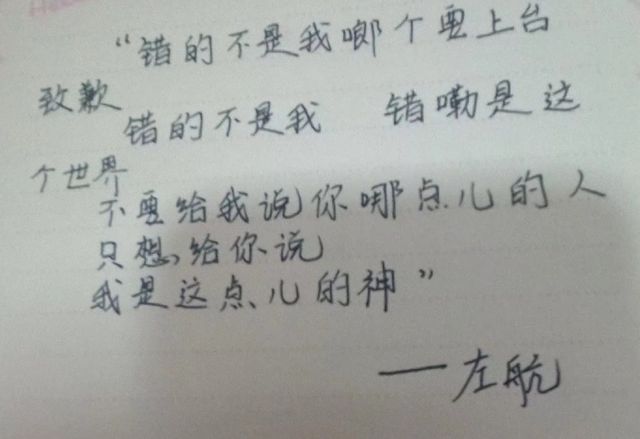 “错的不是我啷个要上台
致歉
错的不是我 错嘞是这
个世界
不要给我说你哪点儿的人
只想给你说
我是这点儿的神”
——左航